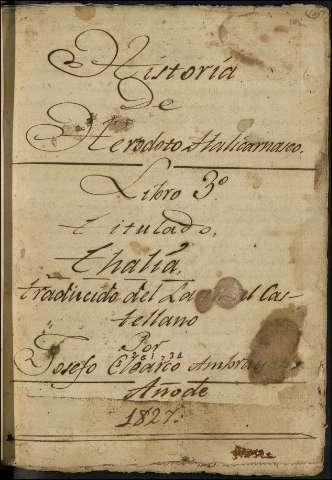 Historia
De
Herodoto Halicarnaseo.
Libro 3º
titulado,
Thalia,
traducido del La al Cas-
tellano
Por
Josefo
Año de
1827.